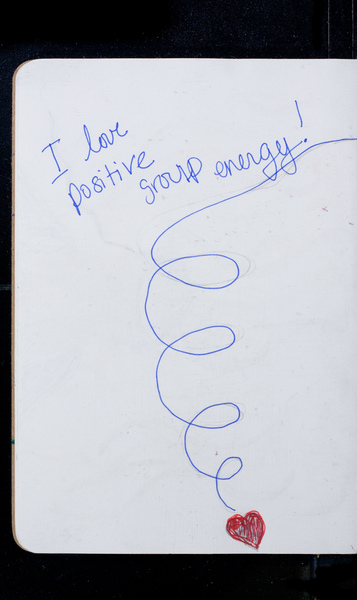 I love
positive group energy!